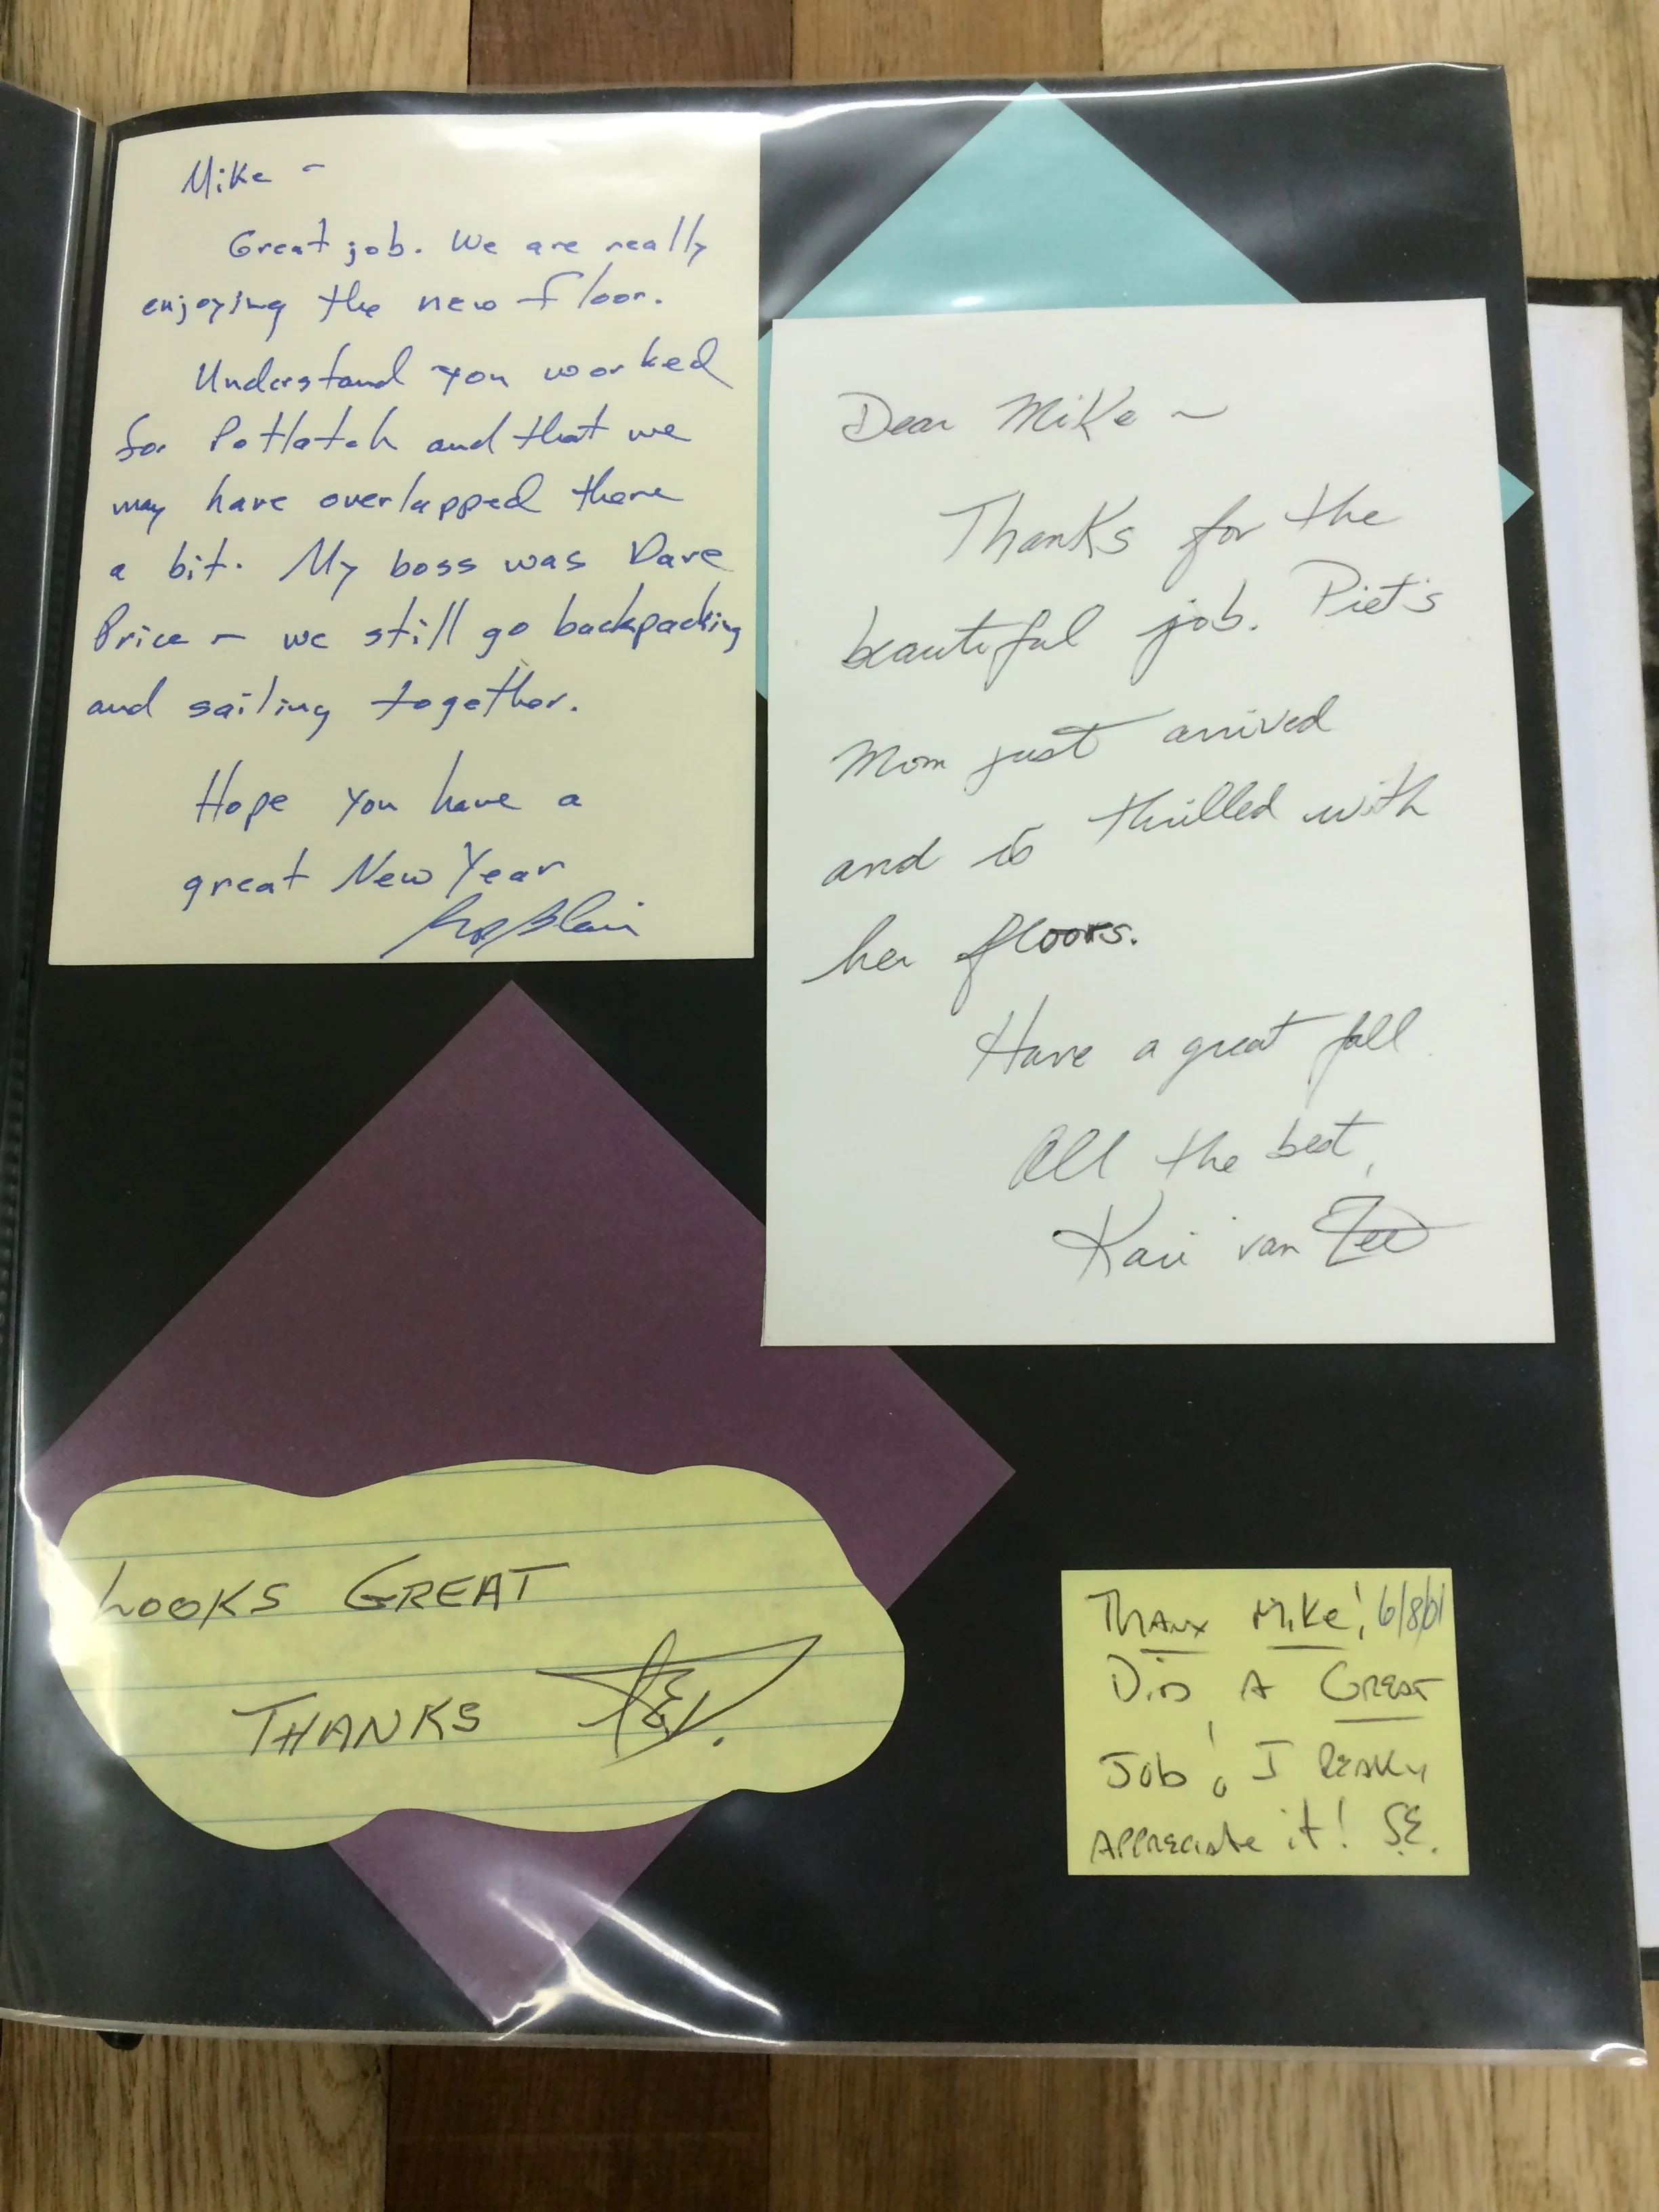 Mike -
Great job. We are really
enjoying the new floor.
Understand you worked
for Potlatch and that we
may have overlapped there
a bit. My boss was Dave
Price - we still go backpacking
and sailing together.
Hope you have a
great New Year
Blair
Dear Mike ~
Thanks for the
beautiful job. Piet's
Mom just arrived
and is thrilled with
her floors.
Have a great fall
All the best,
Kari van Zee
LOOKS GREAT
THANKS
THANX MIKE! 6/8/01
DID A GREAT
JOB! I REALLY
APPRECIATE it! S.E.